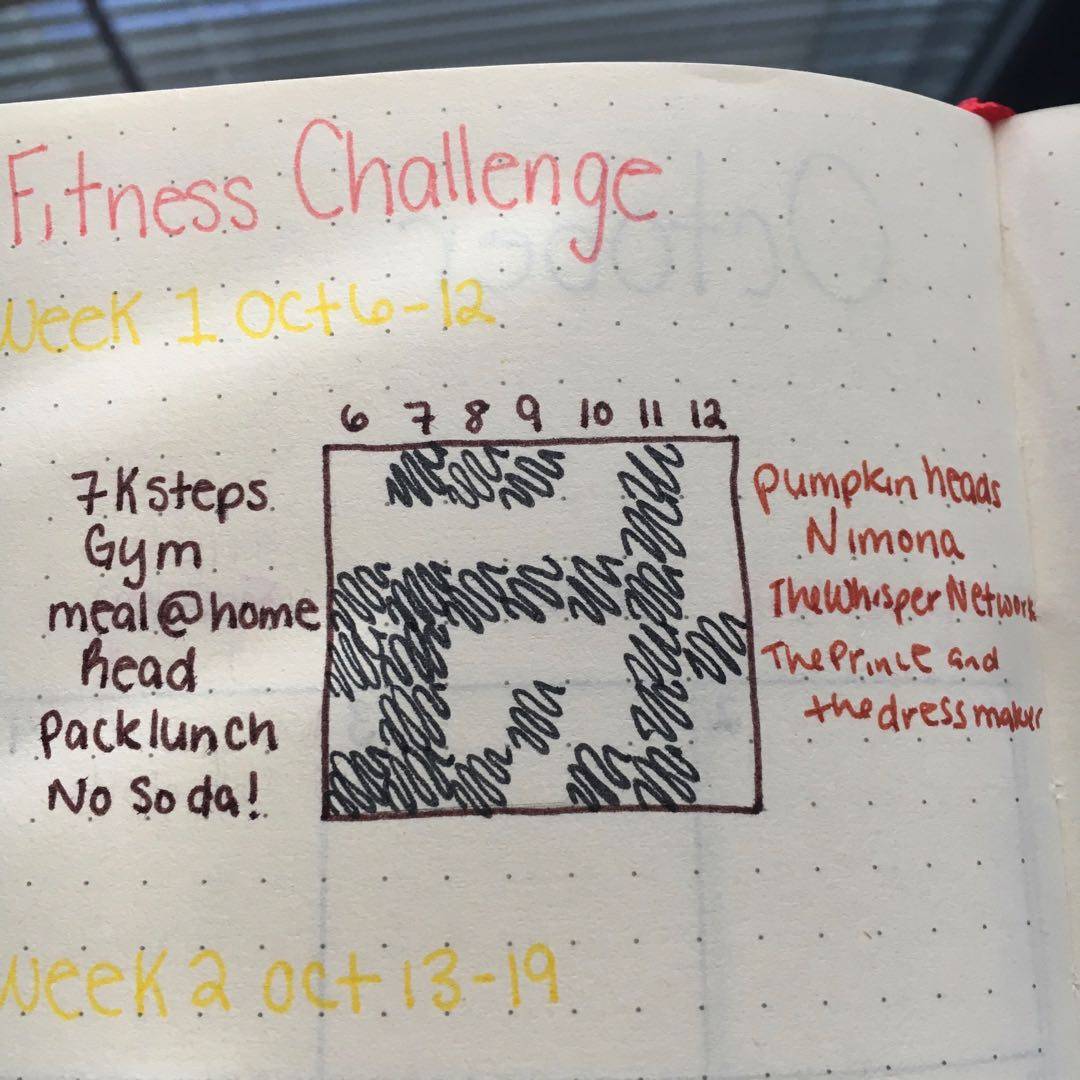 Fitness Challenge
Week 1 Oct 6-12
6 7 8 9 10 11 12
7K steps
Gym
meal@home
Read
Pack lunch
No Soda!
Pumpkin heads
Nimona
The Whisper Network
The Prince and
the dress maker
Week 2 Oct 13-19
October